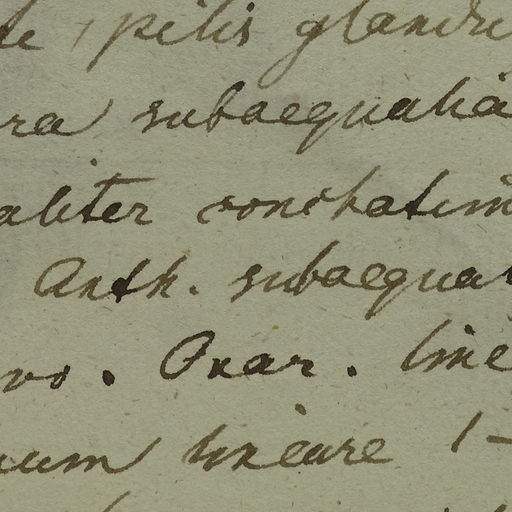 te, pilis glandu
ra subaequalia
aliter conspatim
Anth. subaequa
vo. Ovar. line
uum lineare 1-